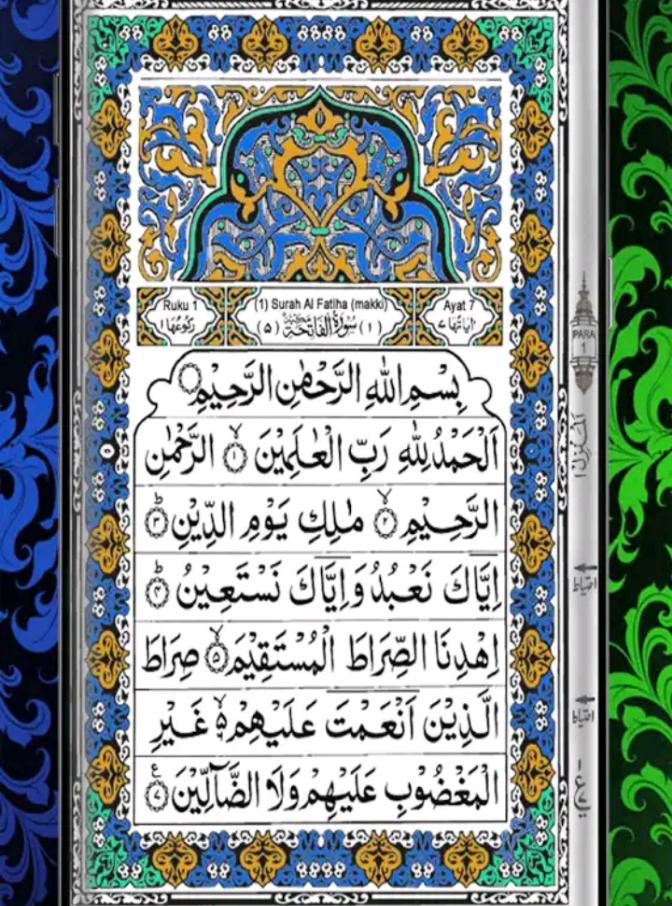 Ruku 1
(1) Surah Al Fatiha (makki)
Ayat 7
رُكُوْعُهَا ١
(١) سُوْرَةُ الْفَاتِحَةِ مَكِّيَّةٌ (٥)
اٰيَاتُهَا ٧
بِسْمِ اللّٰهِ الرَّحْمٰنِ الرَّحِيْمِ
اَلْحَمْدُ لِلّٰهِ رَبِّ الْعٰلَمِيْنَ ۙ﴿١﴾ الرَّحْمٰنِ
الرَّحِيْمِ ۙ﴿٢﴾ مٰلِكِ يَوْمِ الدِّيْنِ ؕ﴿٣﴾
اِيَّاكَ نَعْبُدُ وَاِيَّاكَ نَسْتَعِيْنُ ؕ﴿٤﴾
اِهْدِنَا الصِّرَاطَ الْمُسْتَقِيْمَ ۙ﴿٥﴾ صِرَاطَ
الَّذِيْنَ اَنْعَمْتَ عَلَيْهِمْ ۙ۬ۦ غَيْرِ
الْمَغْضُوْبِ عَلَيْهِمْ وَلَا الضَّآلِّيْنَ ﴿٧﴾ ع
PARA
1
احتیاط
احتیاط